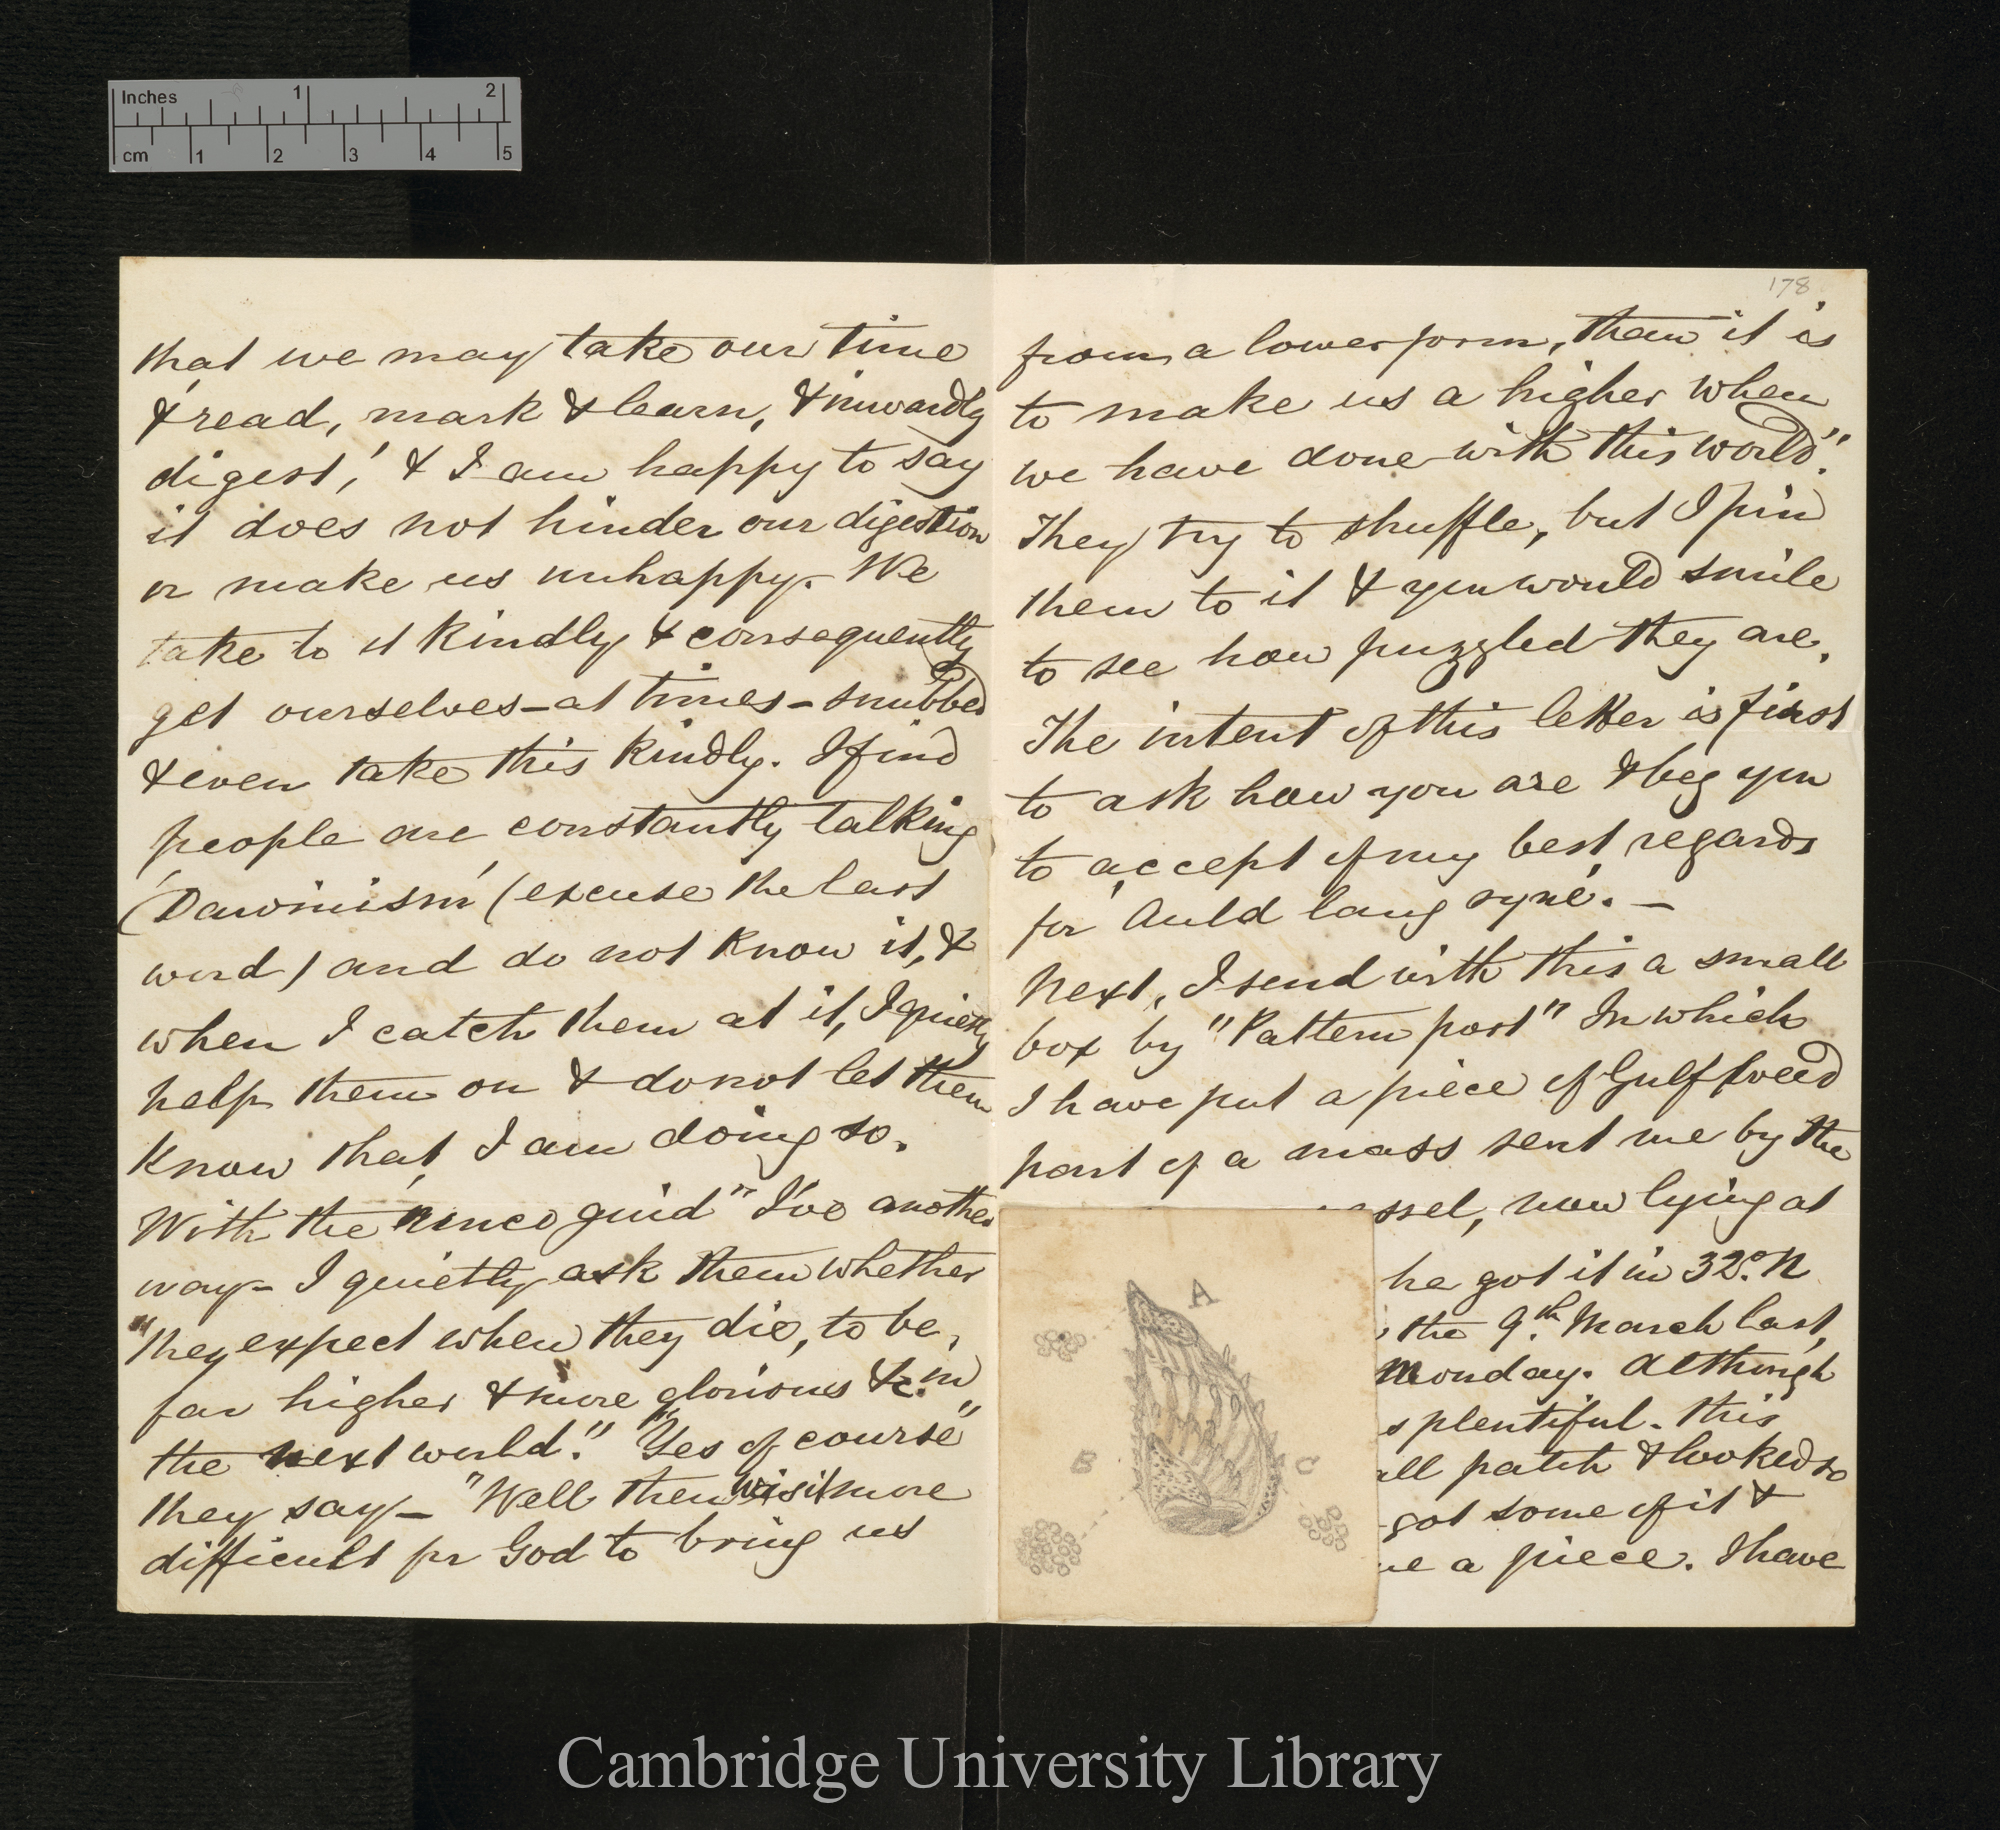 Inches 1 2
cm 1 2 3 4 5
that we may take our time
& 'read, mark & learn, & inwardly
digest,' & I am happy to say
it does not hinder our digestion
or make us unhappy. We
take to it kindly & consequently
get ourselves – at times – snubbed
& even take this kindly. I find
people are constantly talking
'Darwinism' (excuse the last
word) and do not know it, &
when I catch them at it, I quietly
help them on & do not let them
know that, I am doing so.
With the I've another
way – I quietly ask them whether
"they expect when they die, to be,
far higher & more glorious &c. in
the next world." "Yes of course"
they say – "Well then is it more
difficult for God to bring us
178
from a lower form, than it is
to make us a higher when
we have done with this world".
They try to shuffle, but I pin
them to it & you would smile
to see how puzzled they are.
The intent of this letter is first
to ask how you are & beg you
to accept of my best regards
for 'Auld lang syne'. –
Next, I send with this a small
box by "Pattern post" In which
I have put a piece of Gulf weed
part of a mass sent me by the
ssel, now lying at
he got it in 32°. N
the 9th. March last,
Monday. Although
s plentiful. this
all patch & looked so
got some of it &
me a piece. I have
A
B
C
Cambridge University Library